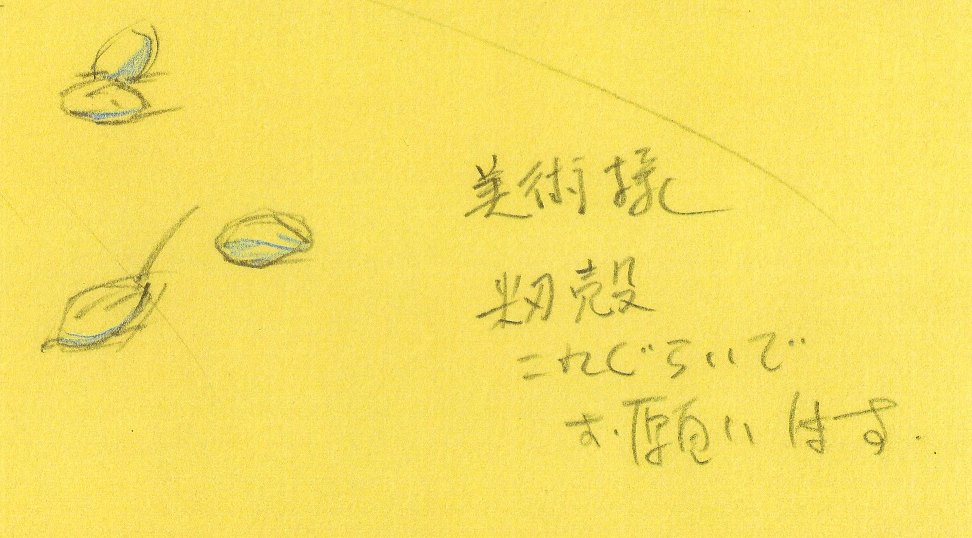 美術様
籾殻
これぐらいで
お願いします.